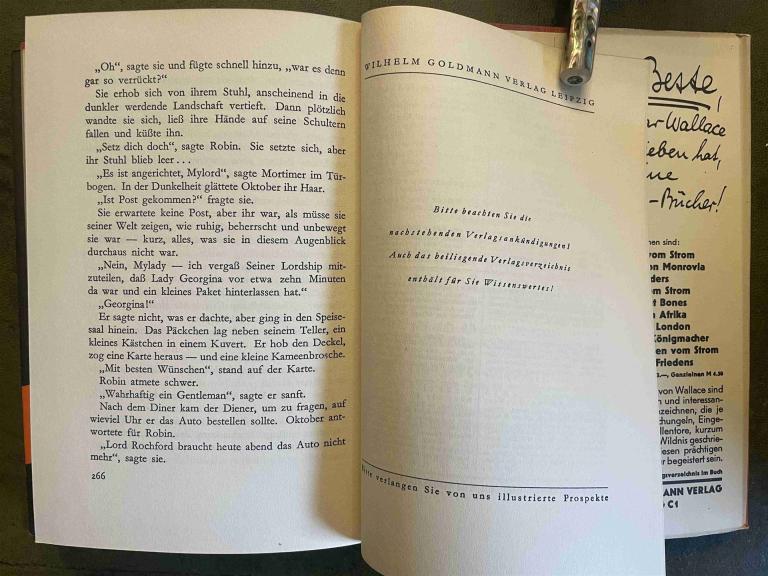 „Oh“, sagte sie und fügte schnell hinzu, „war es denn
gar so verrückt?“
Sie erhob sich von ihrem Stuhl, anscheinend in die
dunkler werdende Landschaft vertieft. Dann plötzlich
wandte sie sich, ließ ihre Hände auf seine Schultern
fallen und küßte ihn.
„Setz dich doch“, sagte Robin. Sie setzte sich, aber
ihr Stuhl blieb leer...
„Es ist angerichtet, Mylord“, sagte Mortimer im Tür-
bogen. In der Dunkelheit glättete Oktober ihr Haar.
„Ist Post gekommen?“ fragte sie.
Sie erwartete keine Post, aber ihr war, als müsse sie
seiner Welt zeigen, wie ruhig, beherrscht und unbewegt
sie war — kurz, alles, was sie in diesem Augenblick
durchaus nicht war.
„Nein, Mylady — ich vergaß Seiner Lordship mit-
zuteilen, daß Lady Georgina vor etwa zehn Minuten
da war und ein kleines Paket hinterlassen hat.“
„Georgina!“
Er sagte nicht, was er dachte, aber ging in den Speise-
saal hinein. Das Päckchen lag neben seinem Teller, ein
kleines Kästchen in einem Kuvert. Er hob den Deckel,
zog eine Karte heraus — und eine kleine Kameenbrosche.
„Mit besten Wünschen“, stand auf der Karte.
Robin atmete schwer.
„Wahrhaftig ein Gentleman“, sagte er sanft.
Nach dem Diner kam der Diener, um zu fragen, auf
wieviel Uhr er das Auto bestellen sollte. Oktober ant-
wortete für Robin.
„Lord Rochford braucht heute abend das Auto nicht
mehr“, sagte sie.
266
WILHELM GOLDMANN VERLAG LEIPZIG
Bitte beachten Sie die
nachstehenden Verlagsankündigungen!
Auch das beiliegende Verlagsverzeichnis
enthält für Sie Wissenswertes!
Bitte verlangen Sie von uns illustrierte Prospekte
Beste,
ar Wallace
ieben hat,
ine
-Bücher!
nen sind:
vom Strom
on Monrovia
ders
om Strom
t Bones
n Afrika
London
Königmacher
en vom Strom
Friedens
3.—, Ganzleinen M 4.50
von Wallace sind
n und interessan-
zeichnen, die je
chungeln, Einge-
llentore, kurzum
Wildnis geschrie-
iesen prächtigen
r begeistert sein.
gsverzeichnis im Buch
MANN VERLAG
C1